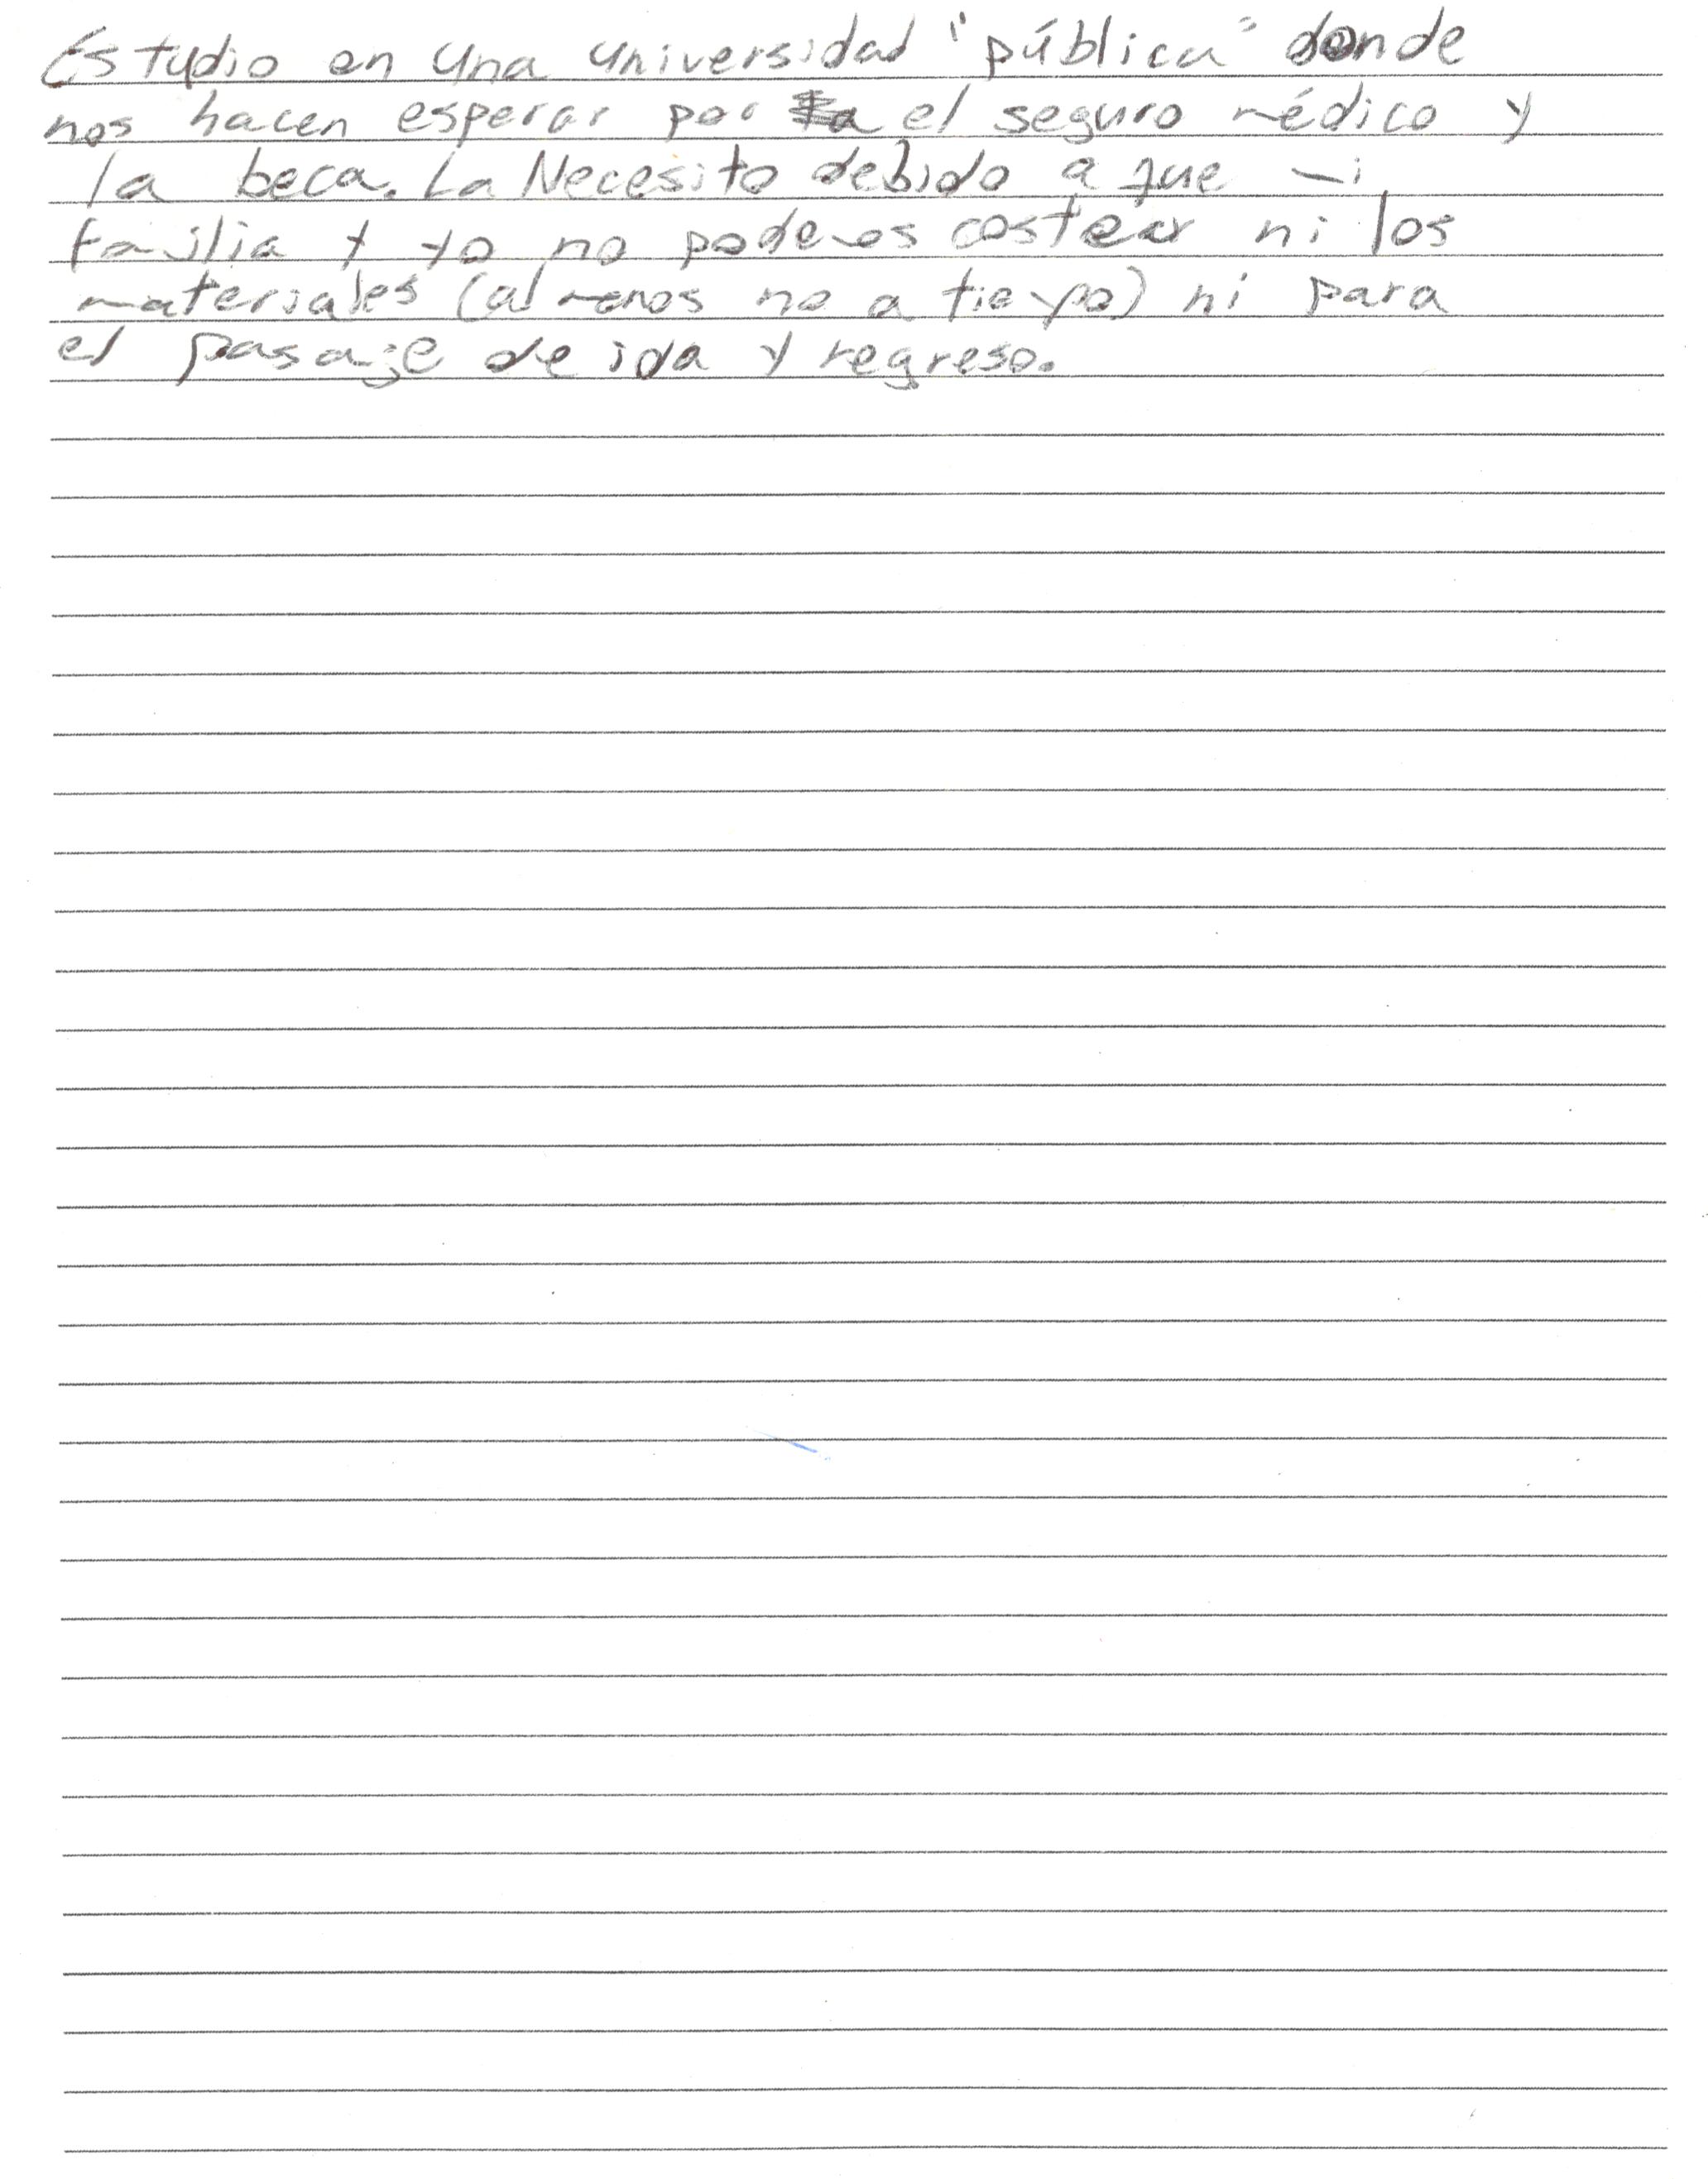 Estudio en una universidad "pública" donde
nos hacen esperar por el seguro médico y
la beca. La Necesito debido a que mi
familia y yo no podemos costear ni los
materiales (al menos no a tiempo) ni para
el pasaje de ida y regreso.